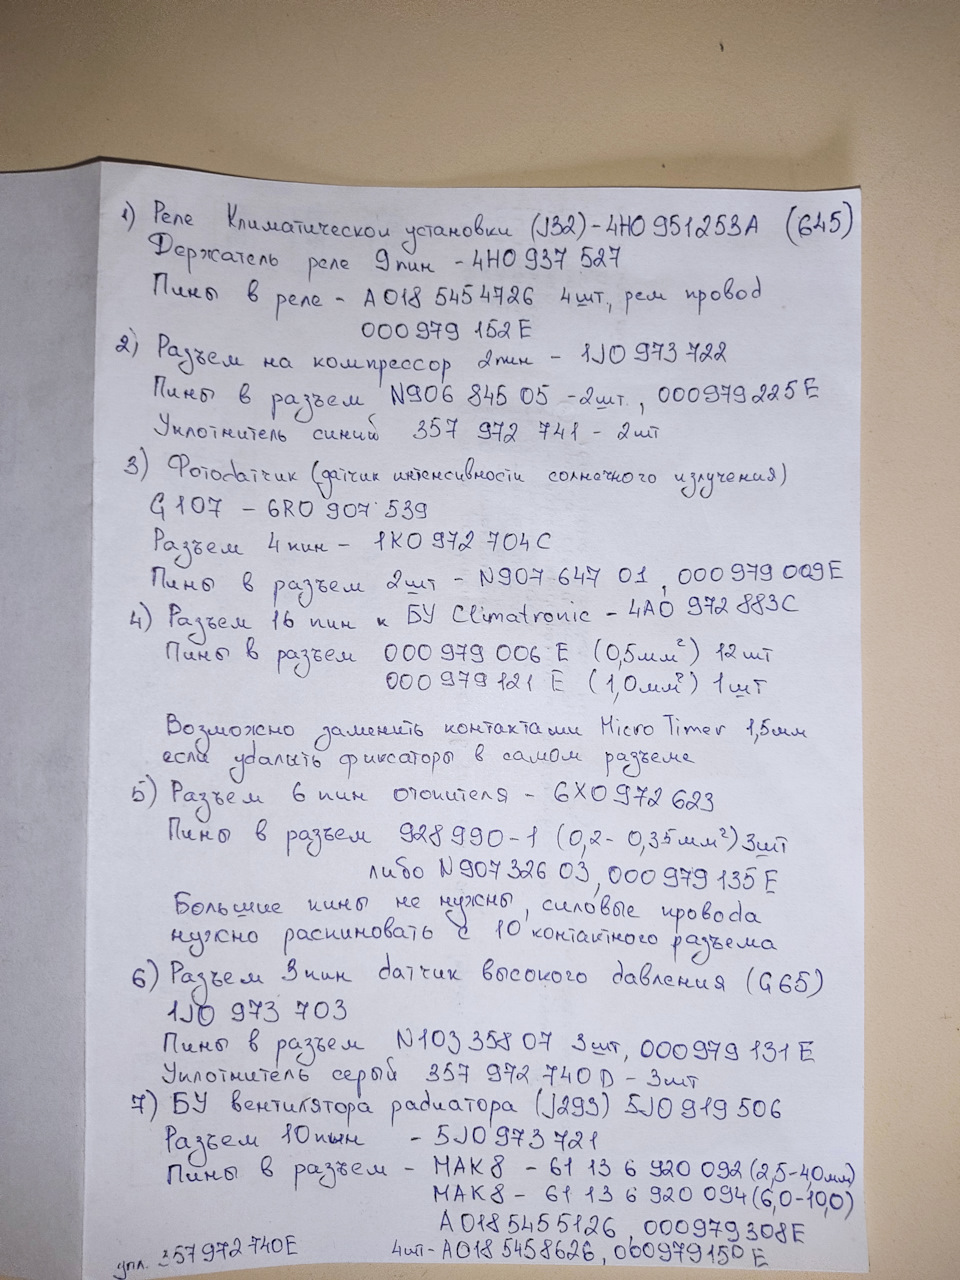 1) Реле Климатической установки (J32)-4H0 951253A (645)
Держатель реле 9пин - 4H0 937 527
Пины в реле - A018 545 4726 4шт, рем провод
000 979 152 E
2) Разъем на компрессор 2пин - 1J0 973 722
Пины в разъем N906 845 05 -2шт. , 000979225E
Уплотнитель синий 357 972 741 - 2шт
3) Фотодатчик (датчик интенсивности солнечного излучения)
G107 - 6R0 907 539
Разъем 4пин - 1K0 972 704C
Пины в разъем 2шт - N907 647 01, 000 979 009E
4) Разъем 16 пин к БУ Climatronic - 4A0 972 883C
Пины в разъем 000 979 006 E (0,5мм²) 12шт
000 979 121 E (1,0мм²) 1шт
Возможно заменить контактами Micro Timer 1,5мм
если удалить фиксаторы в самом разъеме
5) Разъем 6 пин отопителя - 6X0 972 623
Пины в разъем 928 990-1 (0,2- 0,35мм²) 3шт
либо N907 326 03, 000 979 135 E
Большие пины не нужны, силовые провода
нужно распиновать с 10 контактного разъема
6) Разъем 3пин датчик высокого давления (G65)
1J0 973 703
Пины в разъем N103 358 07 3шт, 000979 131 E
Уплотнитель серый 357 972 740D - 3шт
7) БУ вентилятора радиатора (J293) 5J0 919 506
Разъем 10пин - 5J0 973 721
Пины в разъем - MAK8 - 61 13 6 920 092 (2,5-4,0мм)
MAK8 - 61 13 6 920 094 (6,0-10,0)
A018 545 5126, 000979308E
упл. 357972740E 4шт-A018 545 8626, 000979150 E